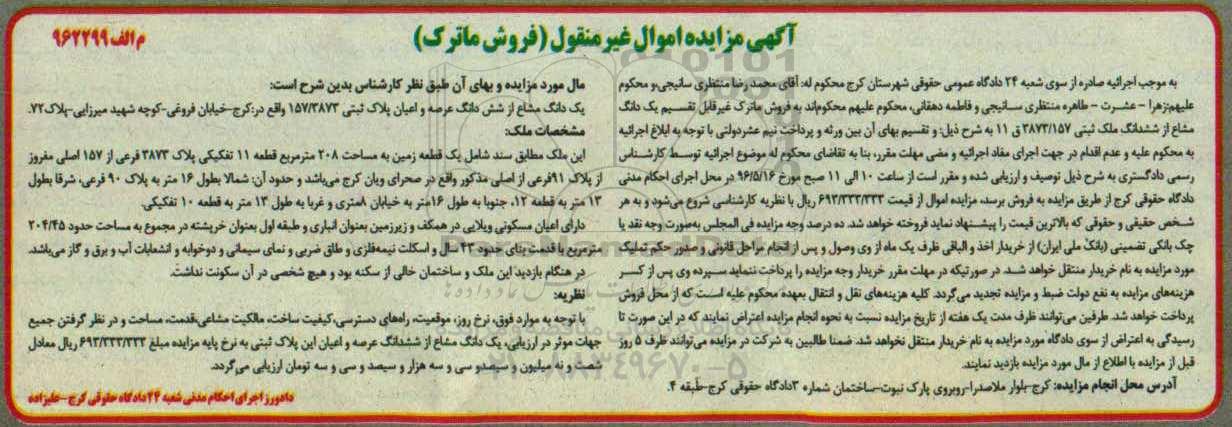 آگهی مزایده اموال غیر منقول (فروش ماترک)
م الف ۹۶۲۲۹۹
به موجب اجرائیه صادره از سوی شعبه ۲۴ دادگاه عمومی حقوقی شهرستان کرج محکوم له: آقای محمد رضا منتظری سانیجی،و محکوم
علیهم:زهرا - عشرت - طاهره منتظری سانیجی و فاطمه دهقانی، محکوم علیهم محکوم‌اند به فروش ماترک غیرقابل تقسیم یک دانگ
مشاع از ششدانگ ملک ثبتی ۳۸۷۳/۱۵۷ ق ۱۱ به شرح ذیل: و تقسیم بهای آن بین ورثه و پرداخت نیم عشردولتی با توجه به ابلاغ اجرائیه
به محکوم علیه و عدم اقدام در جهت اجرای مفاد اجرائیه و مضی مهلت مقرر، بنا به تقاضای محکوم له موضوع اجرائیه توسط کارشناس
رسمی دادگستری به شرح ذیل توصیف و ارزیابی شده و مقرر است از ساعت ۱۰ الی ۱۱ صبح مورخ ۹۶/۵/۱۶ در محل اجرای احکام مدنی
دادگاه حقوقی کرج از طریق مزایده به فروش برسد، مزایده اموال از قیمت ۶۹۳/۳۳۳/۳۳۳ ریال با نظریه کارشناسی شروع می‌شود و به هر
شخص حقیقی و حقوقی که بالاترین قیمت را پیشنهاد نماید فروخته خواهد شد. ده درصد وجه مزایده فی المجلس به‌صورت وجه نقد یا
چک بانکی تضمینی (بانک ملی ایران) از خریدار اخذ و الباقی ظرف یک ماه از وی وصول و پس از انجام مراحل قانونی و صدور حکم تملیک
مورد مزایده به نام خریدار منتقل خواهد شد. در صورتیکه در مهلت مقرر خریدار وجه مزایده را پرداخت ننماید سپرده وی پس از کسر
هزینه‌های مزایده به نفع دولت ضبط و مزایده تجدید می‌گردد. کلیه هزینه‌های نقل و انتقال بعهده محکوم علیه است که از محل فروش
پرداخت خواهد شد. طرفین می‌توانند ظرف مدت یک هفته از تاریخ مزایده نسبت به نحوه انجام مزایده اعتراض نمایند که در این صورت تا
رسیدگی به اعتراض از سوی دادگاه مورد مزایده به نام خریدار منتقل نخواهد شد. ضمنا طالبین به شرکت در مزایده می‌توانند ظرف ۵ روز
قبل از مزایده با اطلاع از مال مورد مزایده بازدید نمایند.
آدرس محل انجام مزایده: کرج-بلوار ملاصدرا-روبروی پارک نبوت-ساختمان شماره ۳دادگاه حقوقی کرج-طبقه ۴.
مال مورد مزایده و بهای آن طبق نظر کارشناس بدین شرح است:
یک دانگ مشاع از شش دانگ عرصه و اعیان پلاک ثبتی ۱۵۷/۳۸۷۳ واقع در:کرج-خیابان فروغی-کوچه شهید میرزایی-پلاک۷۲.
مشخصات ملک:
این ملک مطابق سند شامل یک قطعه زمین به مساحت ۲۰۸ مترمربع قطعه ۱۱ تفکیکی پلاک ۳۸۷۳ فرعی از ۱۵۷ اصلی مفروز
از پلاک ۹۱فرعی از اصلی مذکور واقع در صحرای ویان کرج می‌باشد و حدود آن: شمالا بطول ۱۶ متر به پلاک ۹۰ فرعی، شرقا بطول
۱۳ متر به قطعه ۱۲، جنوبا به طول ۱۶متر به خیابان ۸متری و غربا به طول ۱۳ متر به قطعه ۱۰ تفکیکی.
دارای اعیان مسکونی ویلایی در همکف و زیرزمین بعنوان انباری و طبقه اول بعنوان خرپشته در مجموع به مساحت حدود ۲۰۴/۴۵
مترمربع با قدمت بنای حدود ۴۳ سال و اسکلت نیمه‌فلزی و طاق ضربی و نمای سیمانی و دوخوابه و انشعابات آب و برق و گاز می‌باشد.
در هنگام بازدید این ملک و ساختمان خالی از سکنه بود و هیچ شخصی در آن سکونت نداشت.
نظریه:
با توجه به موارد فوق، نرخ روز، موقعیت، راه‌های دسترسی،کیفیت ساخت، مالکیت مشاعی،قدمت، مساحت و در نظر گرفتن جمیع
جهات موثر در ارزیابی، یک دانگ مشاع از ششدانگ عرصه و اعیان این پلاک ثبتی به نرخ پایه مزایده مبلغ ۶۹۳/۳۳۳/۳۳۳ ریال معادل
شصت و نه میلیون و سیصدو سی و سه هزار و سیصد و سی و سه تومان ارزیابی می‌گردد.
دادورز اجرای احکام مدنی شعبه ۲۴ دادگاه حقوقی کرج-علیزاده
۰۲۱-۸۸۳۴۹۶۷۰-۵